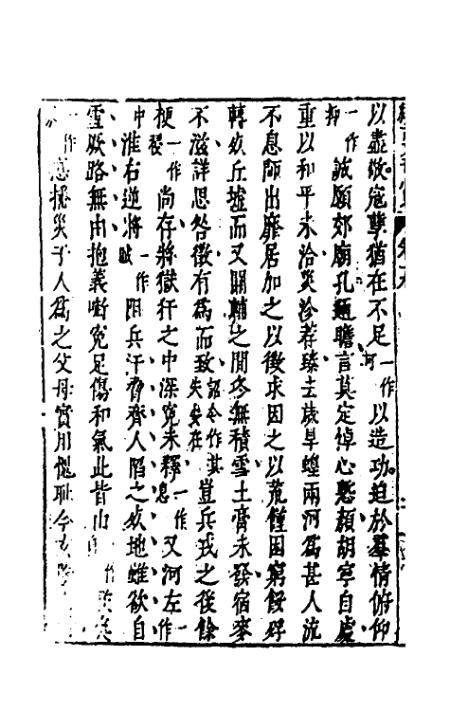 以盡敬寇孽猶在不足一作何以造功迫於羣情俯仰
一作抑誠願郊廟孔邇瞻言莫定悼心懸顔胡寧自處
重以和平未洽災沴荐臻去歲旱蝗兩河爲甚人流
不息師出靡居加之以徵求因之以荒饉困窮餒殍
轉死丘墟而又關輔之閒冬無積雪土膏未發宿麥
不滋詳思咎徵有爲而致一作失安在豈兵戎之後餘
梗一作孽尚存將獄犴之中深冤未釋一作息又河左一作
中淮右逆將一作賊阻兵汗脅齊人陷之死地雖欲自
雪厥路無由抱義銜冤足傷和氣此皆由
一作應援災予人爲之父母實用愧耻今